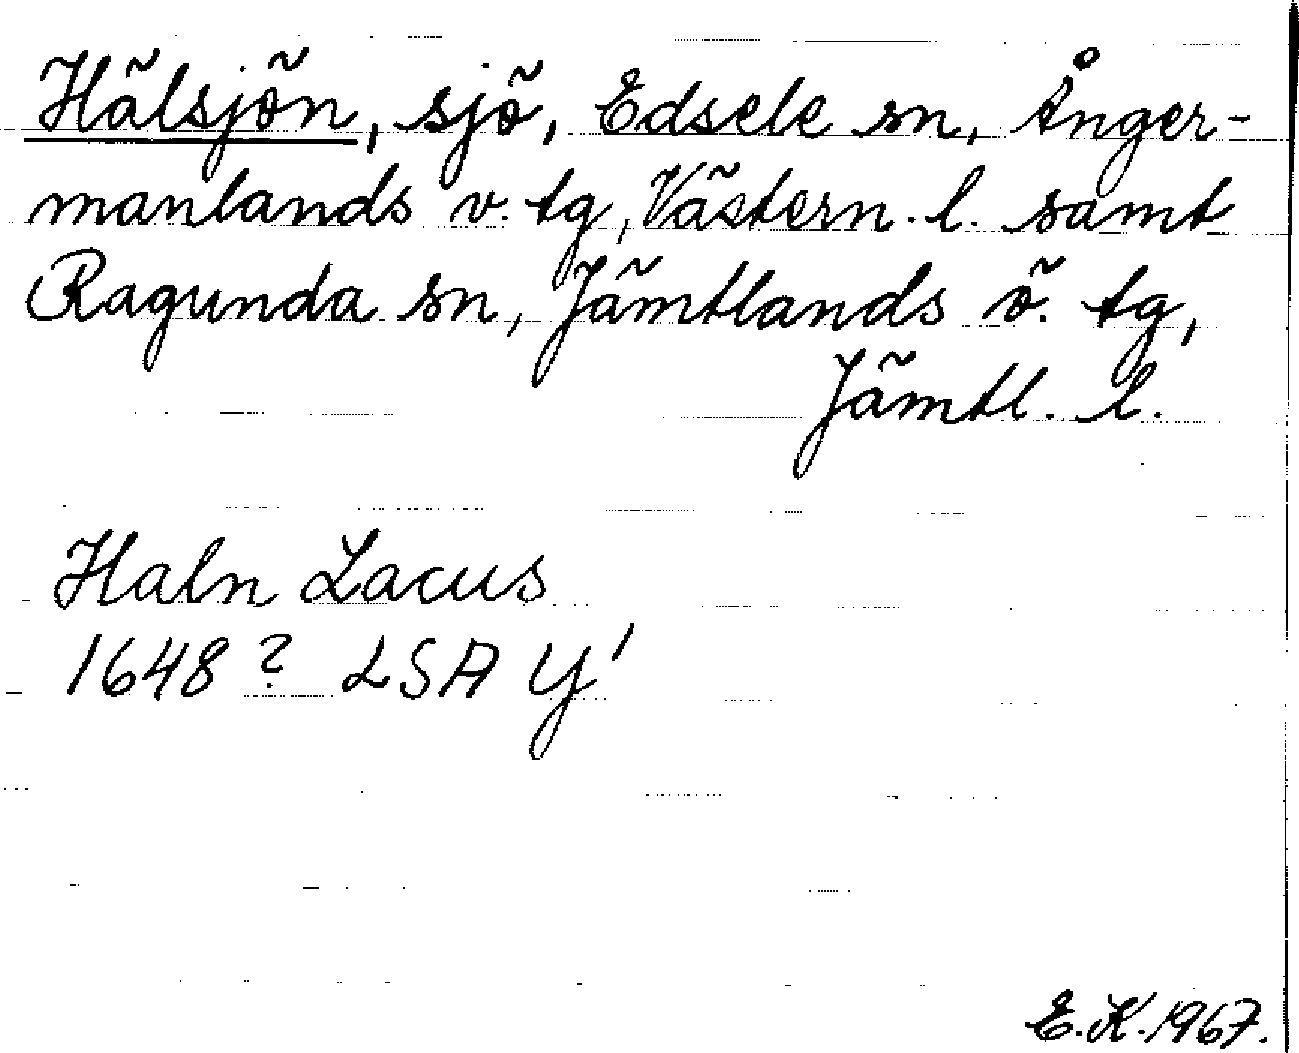 Hälsjön, sjö, Edsele sn, Ånger-
manlands v. tg, Västern. l. samt
Ragunda sn, Jämtlands ö. tg,
Jämtl. l.
Haln Lacus
1648? LSA Y'
E.K. 1967.